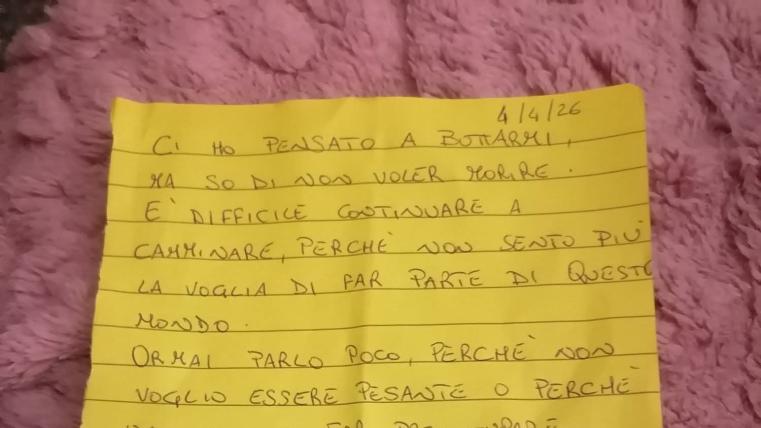 4/4/26
CI HO PENSATO A BUTTARMI,
MA SO DI NON VOLER MORIRE.
E' DIFFICILE CONTINUARE A
CAMMINARE, PERCHÈ NON SENTO PIÙ
LA VOGLIA DI FAR PARTE DI QUESTO
MONDO.
ORMAI PARLO POCO, PERCHÈ NON
VOGLIO ESSERE PESANTE O PERCHÈ